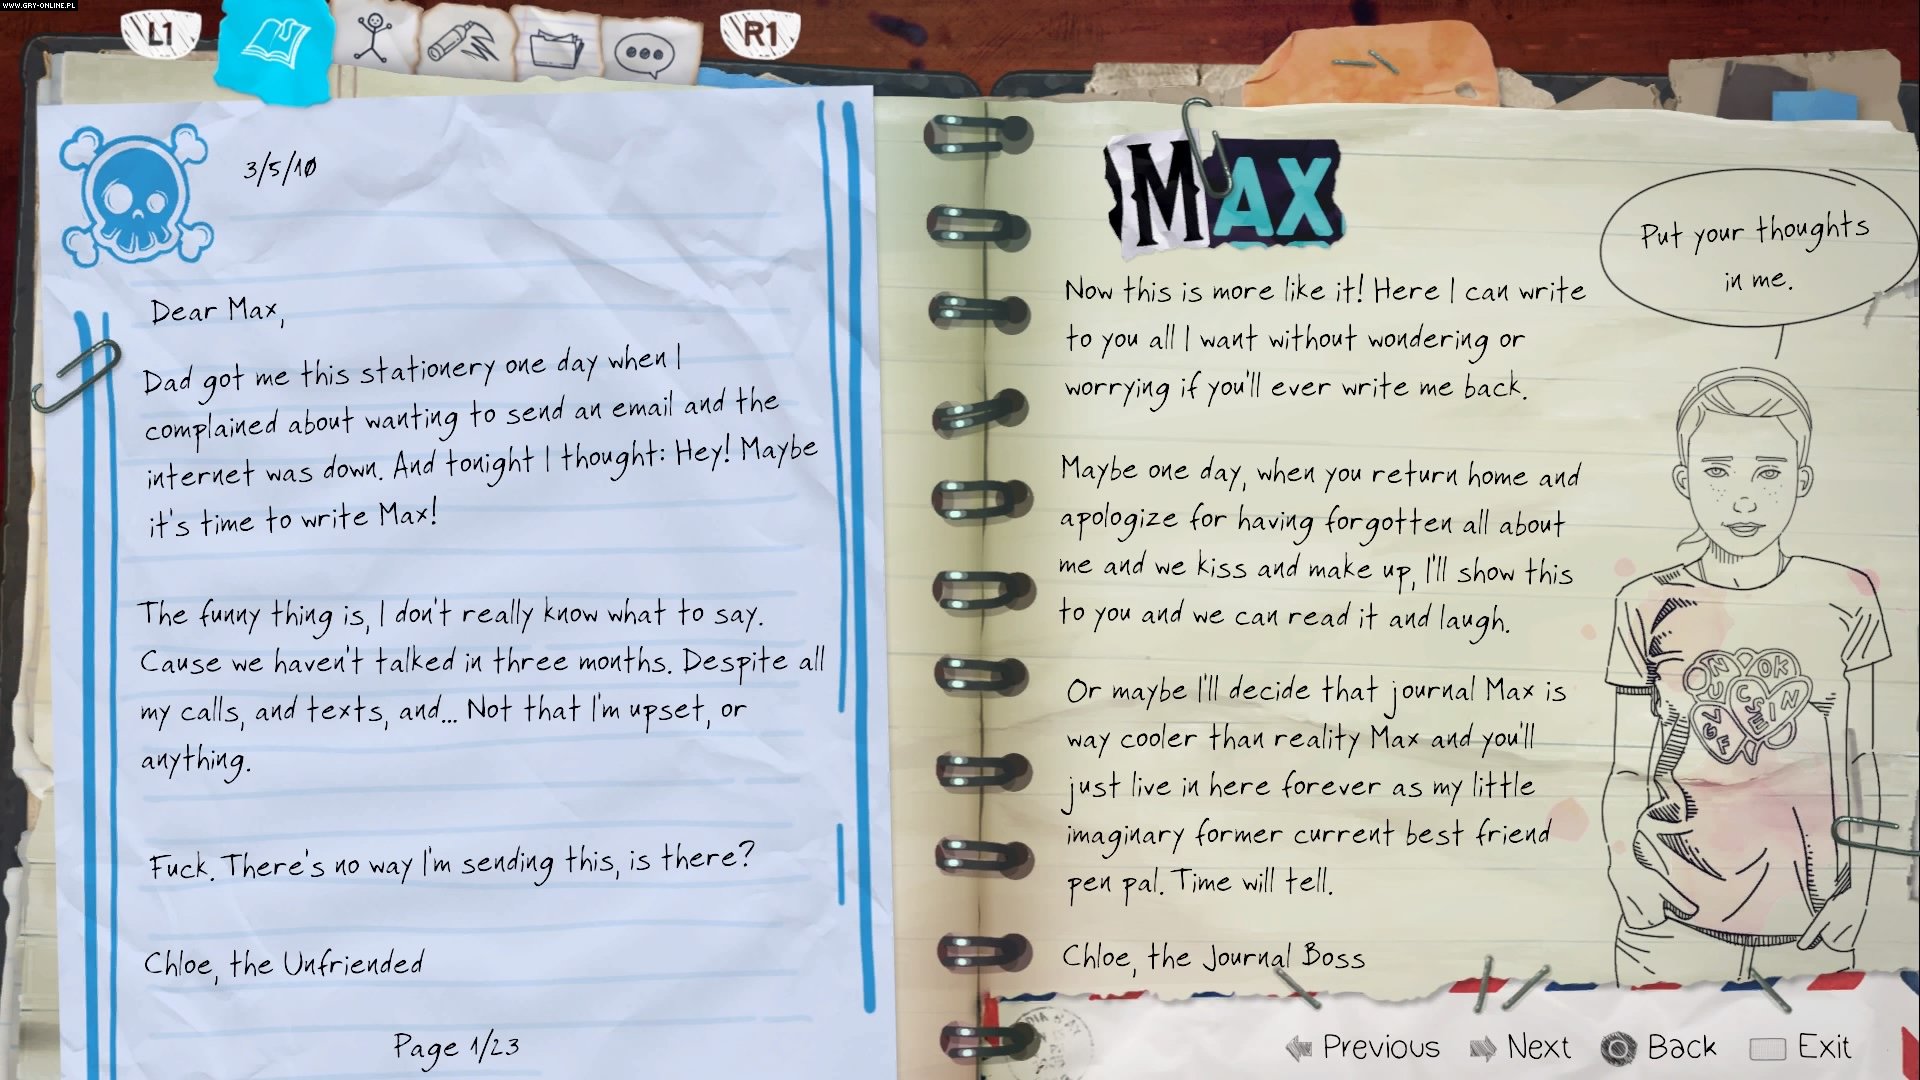 WWW.GRY-ONLINE.PL
L1
R1
3/5/10
Dear Max,
Dad got me this stationery one day when I
complained about wanting to send an email and the
internet was down. And tonight I thought: Hey! Maybe
it's time to write Max!
The funny thing is, I don't really know what to say.
Cause we haven't talked in three months. Despite all
my calls, and texts, and... Not that I'm upset, or
anything.
Fuck. There's no way I'm sending this, is there?
Chloe, the Unfriended
Page 1/23
MAX
Now this is more like it! Here I can write
to you all I want without wondering or
worrying if you'll ever write me back.
Maybe one day, when you return home and
apologize for having forgotten all about
me and we kiss and make up, I'll show this
to you and we can read it and laugh.
Or maybe I'll decide that journal Max is
way cooler than reality Max and you'll
just live in here forever as my little
imaginary former current best friend
pen pal. Time will tell.
Chloe, the Journal Boss
Put your thoughts
in me.
Previous
Next
Back
Exit